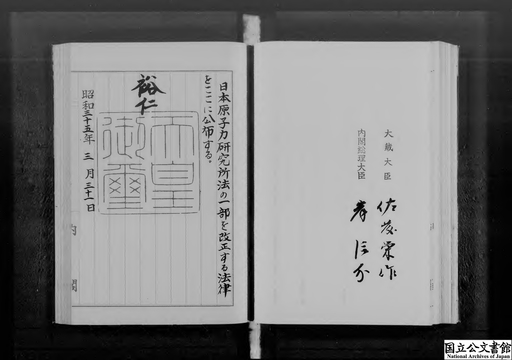 日本原子力研究所法の一部を改正する法律
をここに公布する。
裕仁
天皇
御璽
昭和三十五年三月三十一日
内閣
大蔵大臣
佐藤栄作
内閣総理大臣
岸信介
国立公文書館
National Archives of Japan